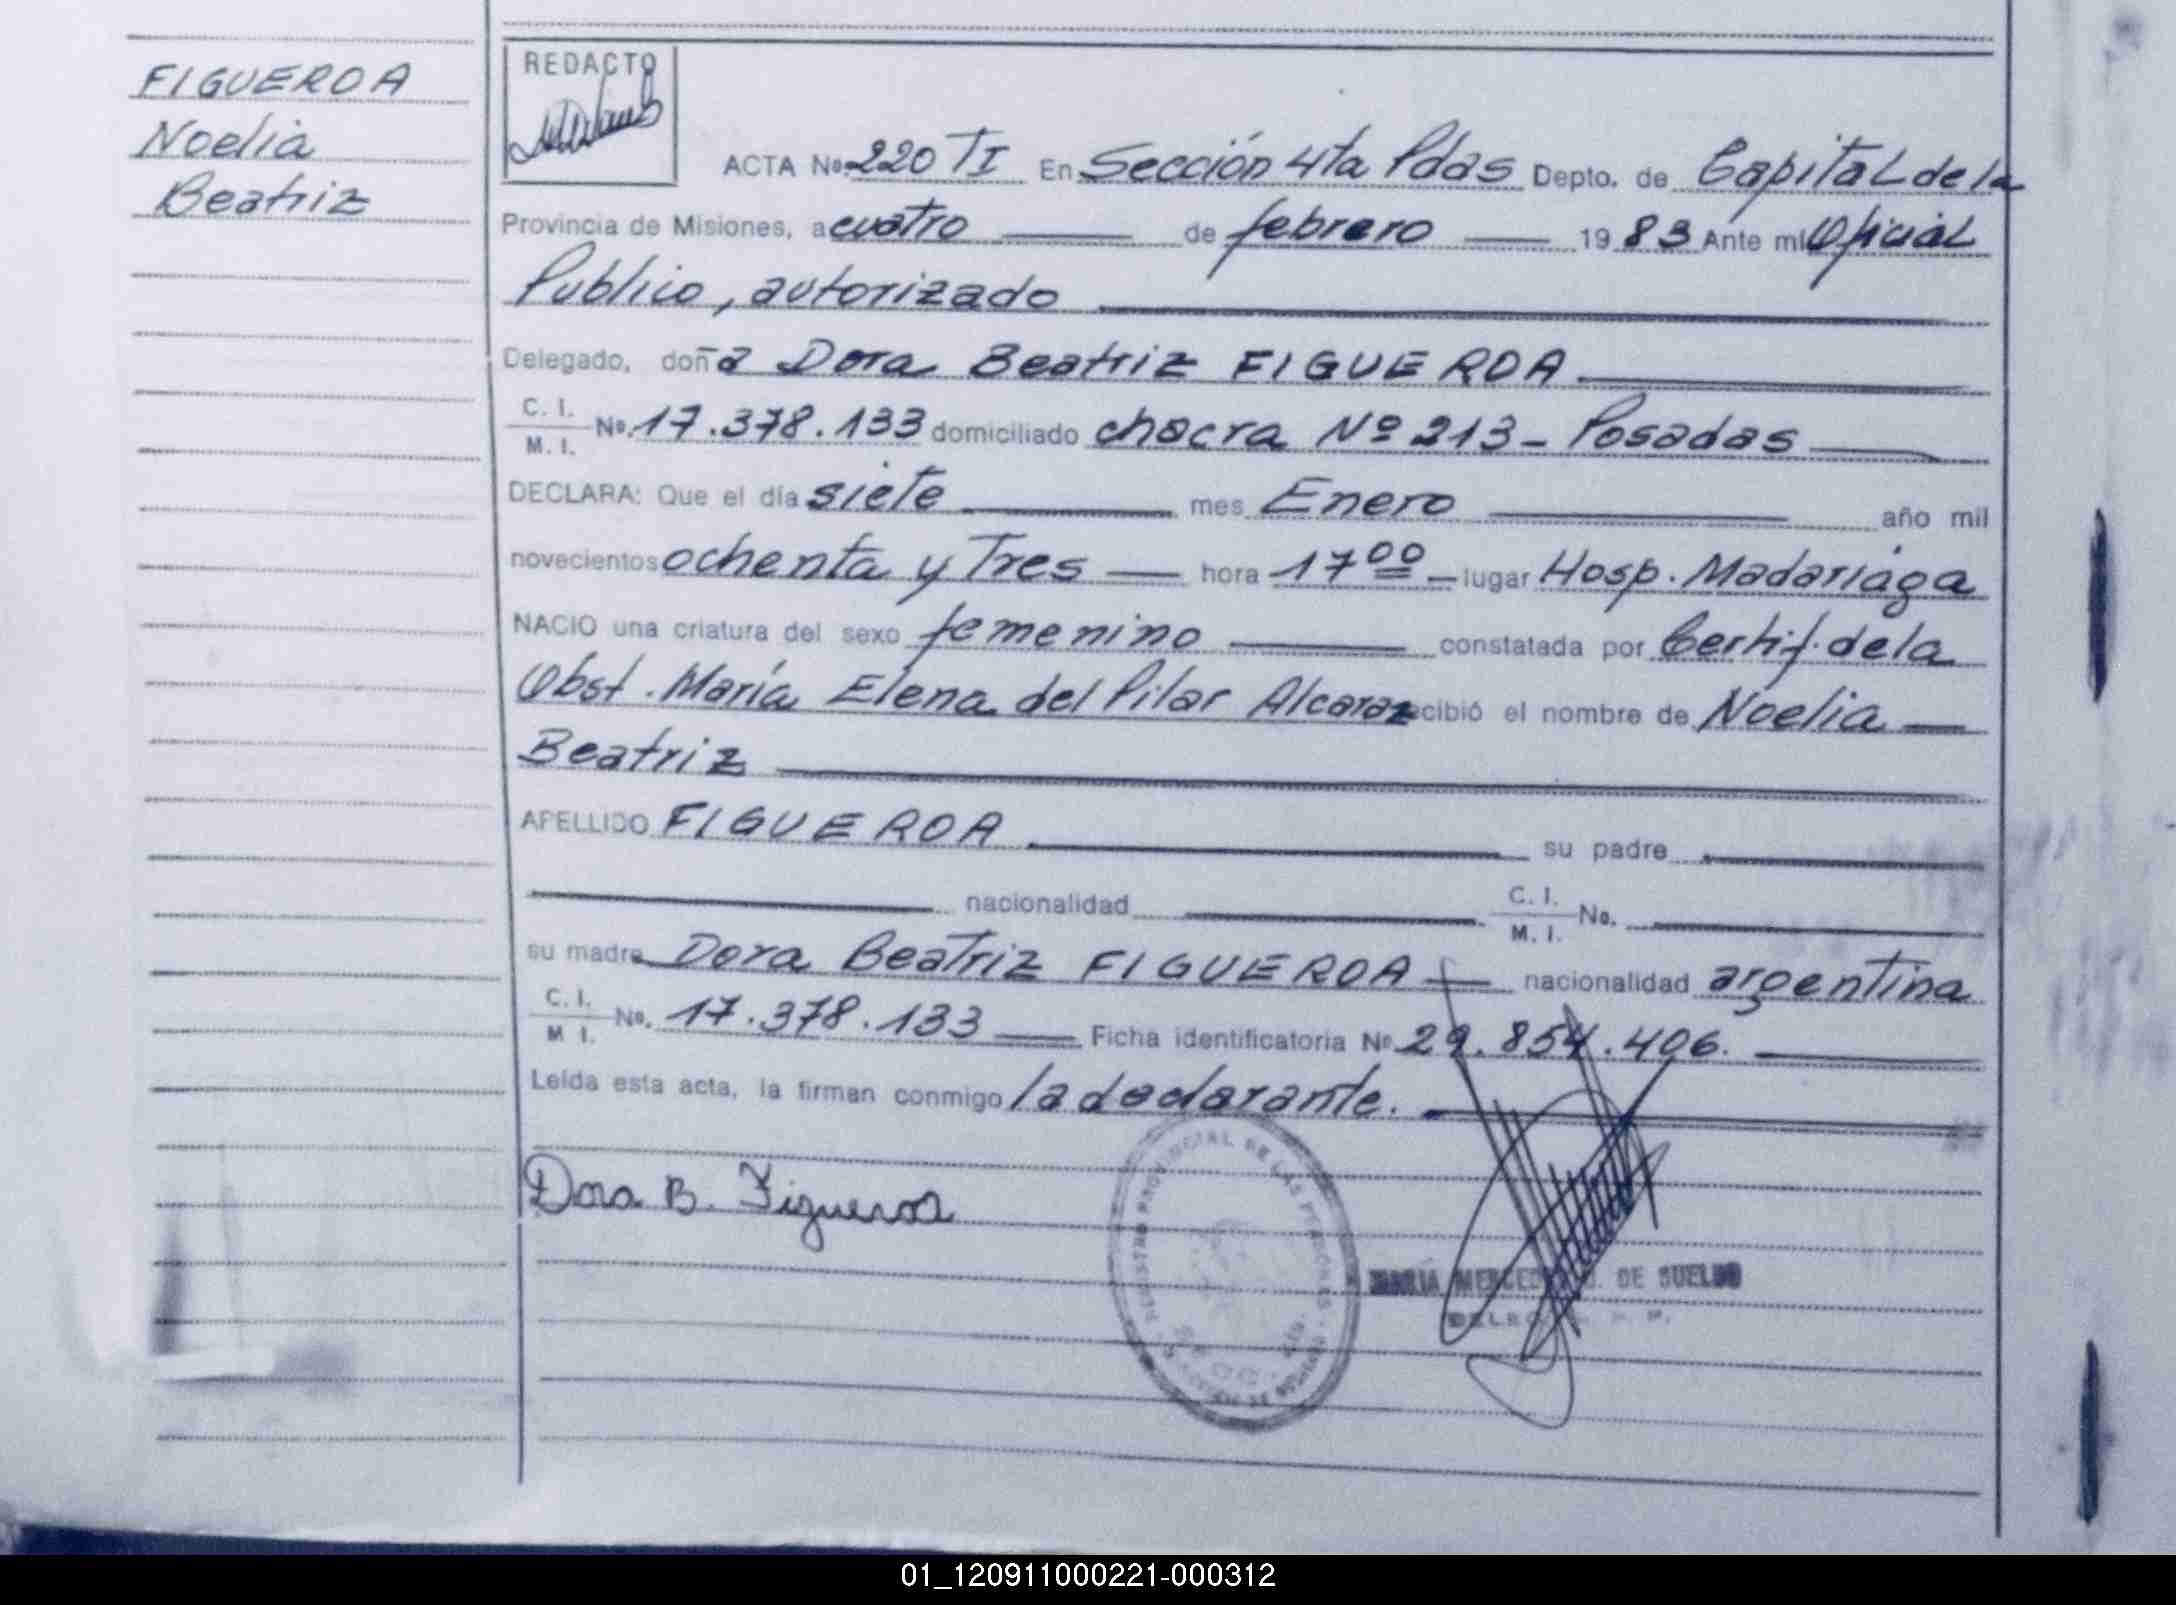 FIGUEROA
Noelia
Beatriz
REDACTO
ACTA No. 220 TI En Sección 4ta Pdas Depto. de Capital de la
Provincia de Misiones, a cuatro de febrero 19 83 Ante mi Oficial
Publico, autorizado
Delegado, doña Dora Beatriz FIGUEROA
C. I. M. I. No. 17.378.133 domiciliado chacra Nº 213 - Posadas
DECLARA: Que el día siete mes Enero año mil
novecientos ochenta y Tres hora 17 00 lugar Hosp. Madariaga
NACIO una criatura del sexo femenino constatada por Certif. de la
Obst. María Elena del Pilar Alcaraz recibió el nombre de Noelia
Beatriz
APELLIDO FIGUEROA su padre
nacionalidad C. I. M. I. No.
su madre Dora Beatriz FIGUEROA nacionalidad argentina
C. I. M I. No. 17.378.133 Ficha identificatoria No 29.854.406.
Leída esta acta, la firman conmigo la declarante.
Dora B. Figueroa
REGISTRO PROVINCIAL DE LAS PERSONAS
MARIA MERCEDES DE SUELDO
01_120911000221-000312